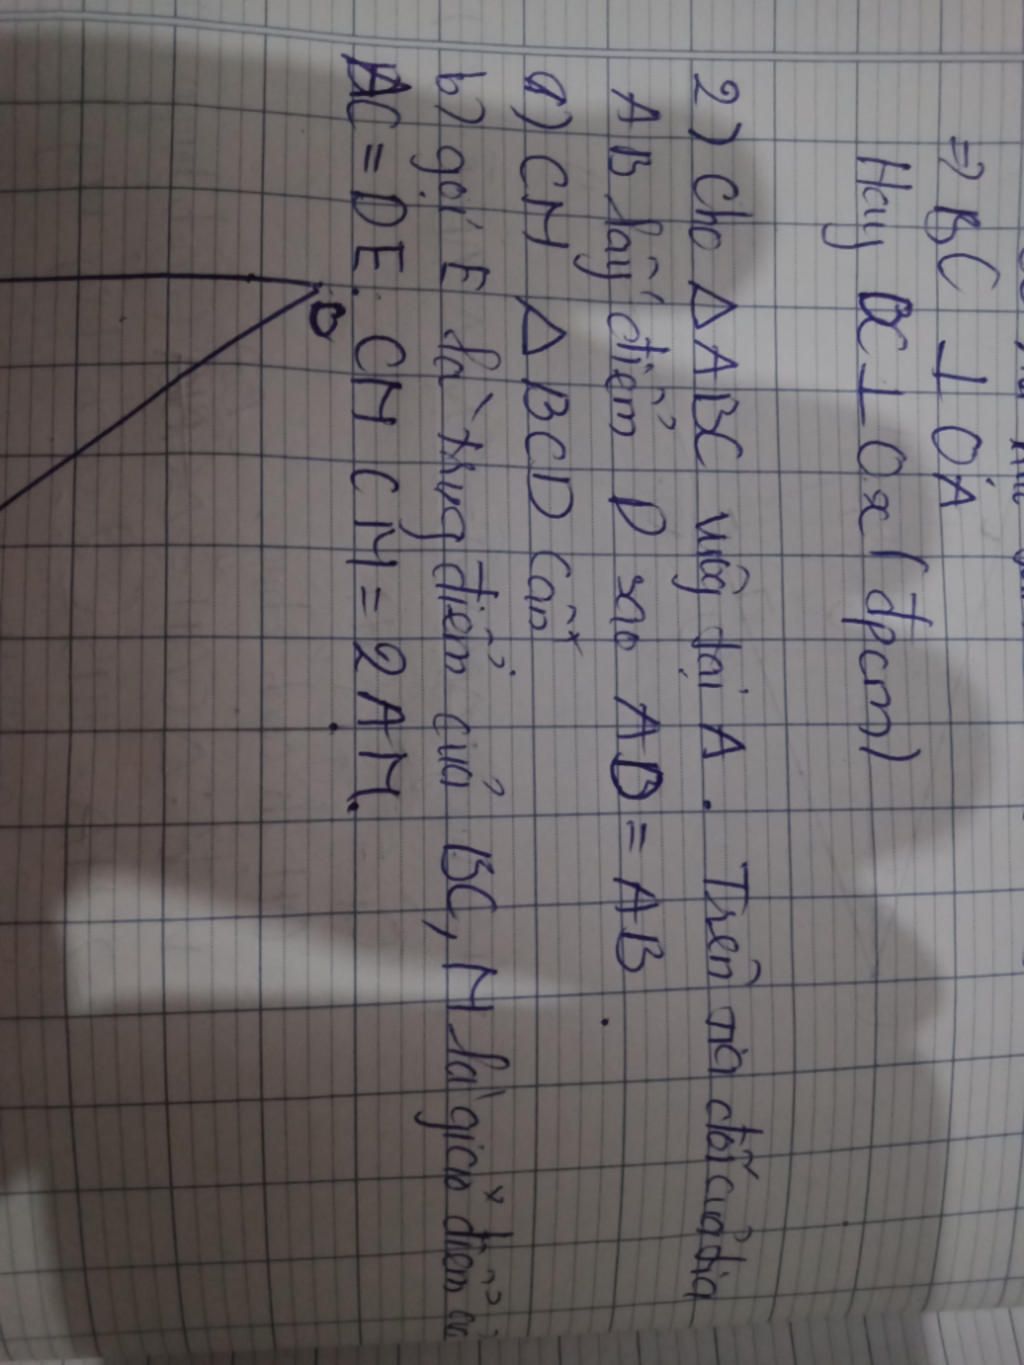 => BC ⊥ OA
Hay BC ⊥ Ox (đpcm)
2) Cho Δ ABC vuông tại A. Trên nửa đối của tia
AB lấy điểm D sao AD = AB.
a) CM Δ BCD cân
b) gọi E là trung điểm của BC, M là giao điểm của
AC = DE. CM CM = 2AM.
B